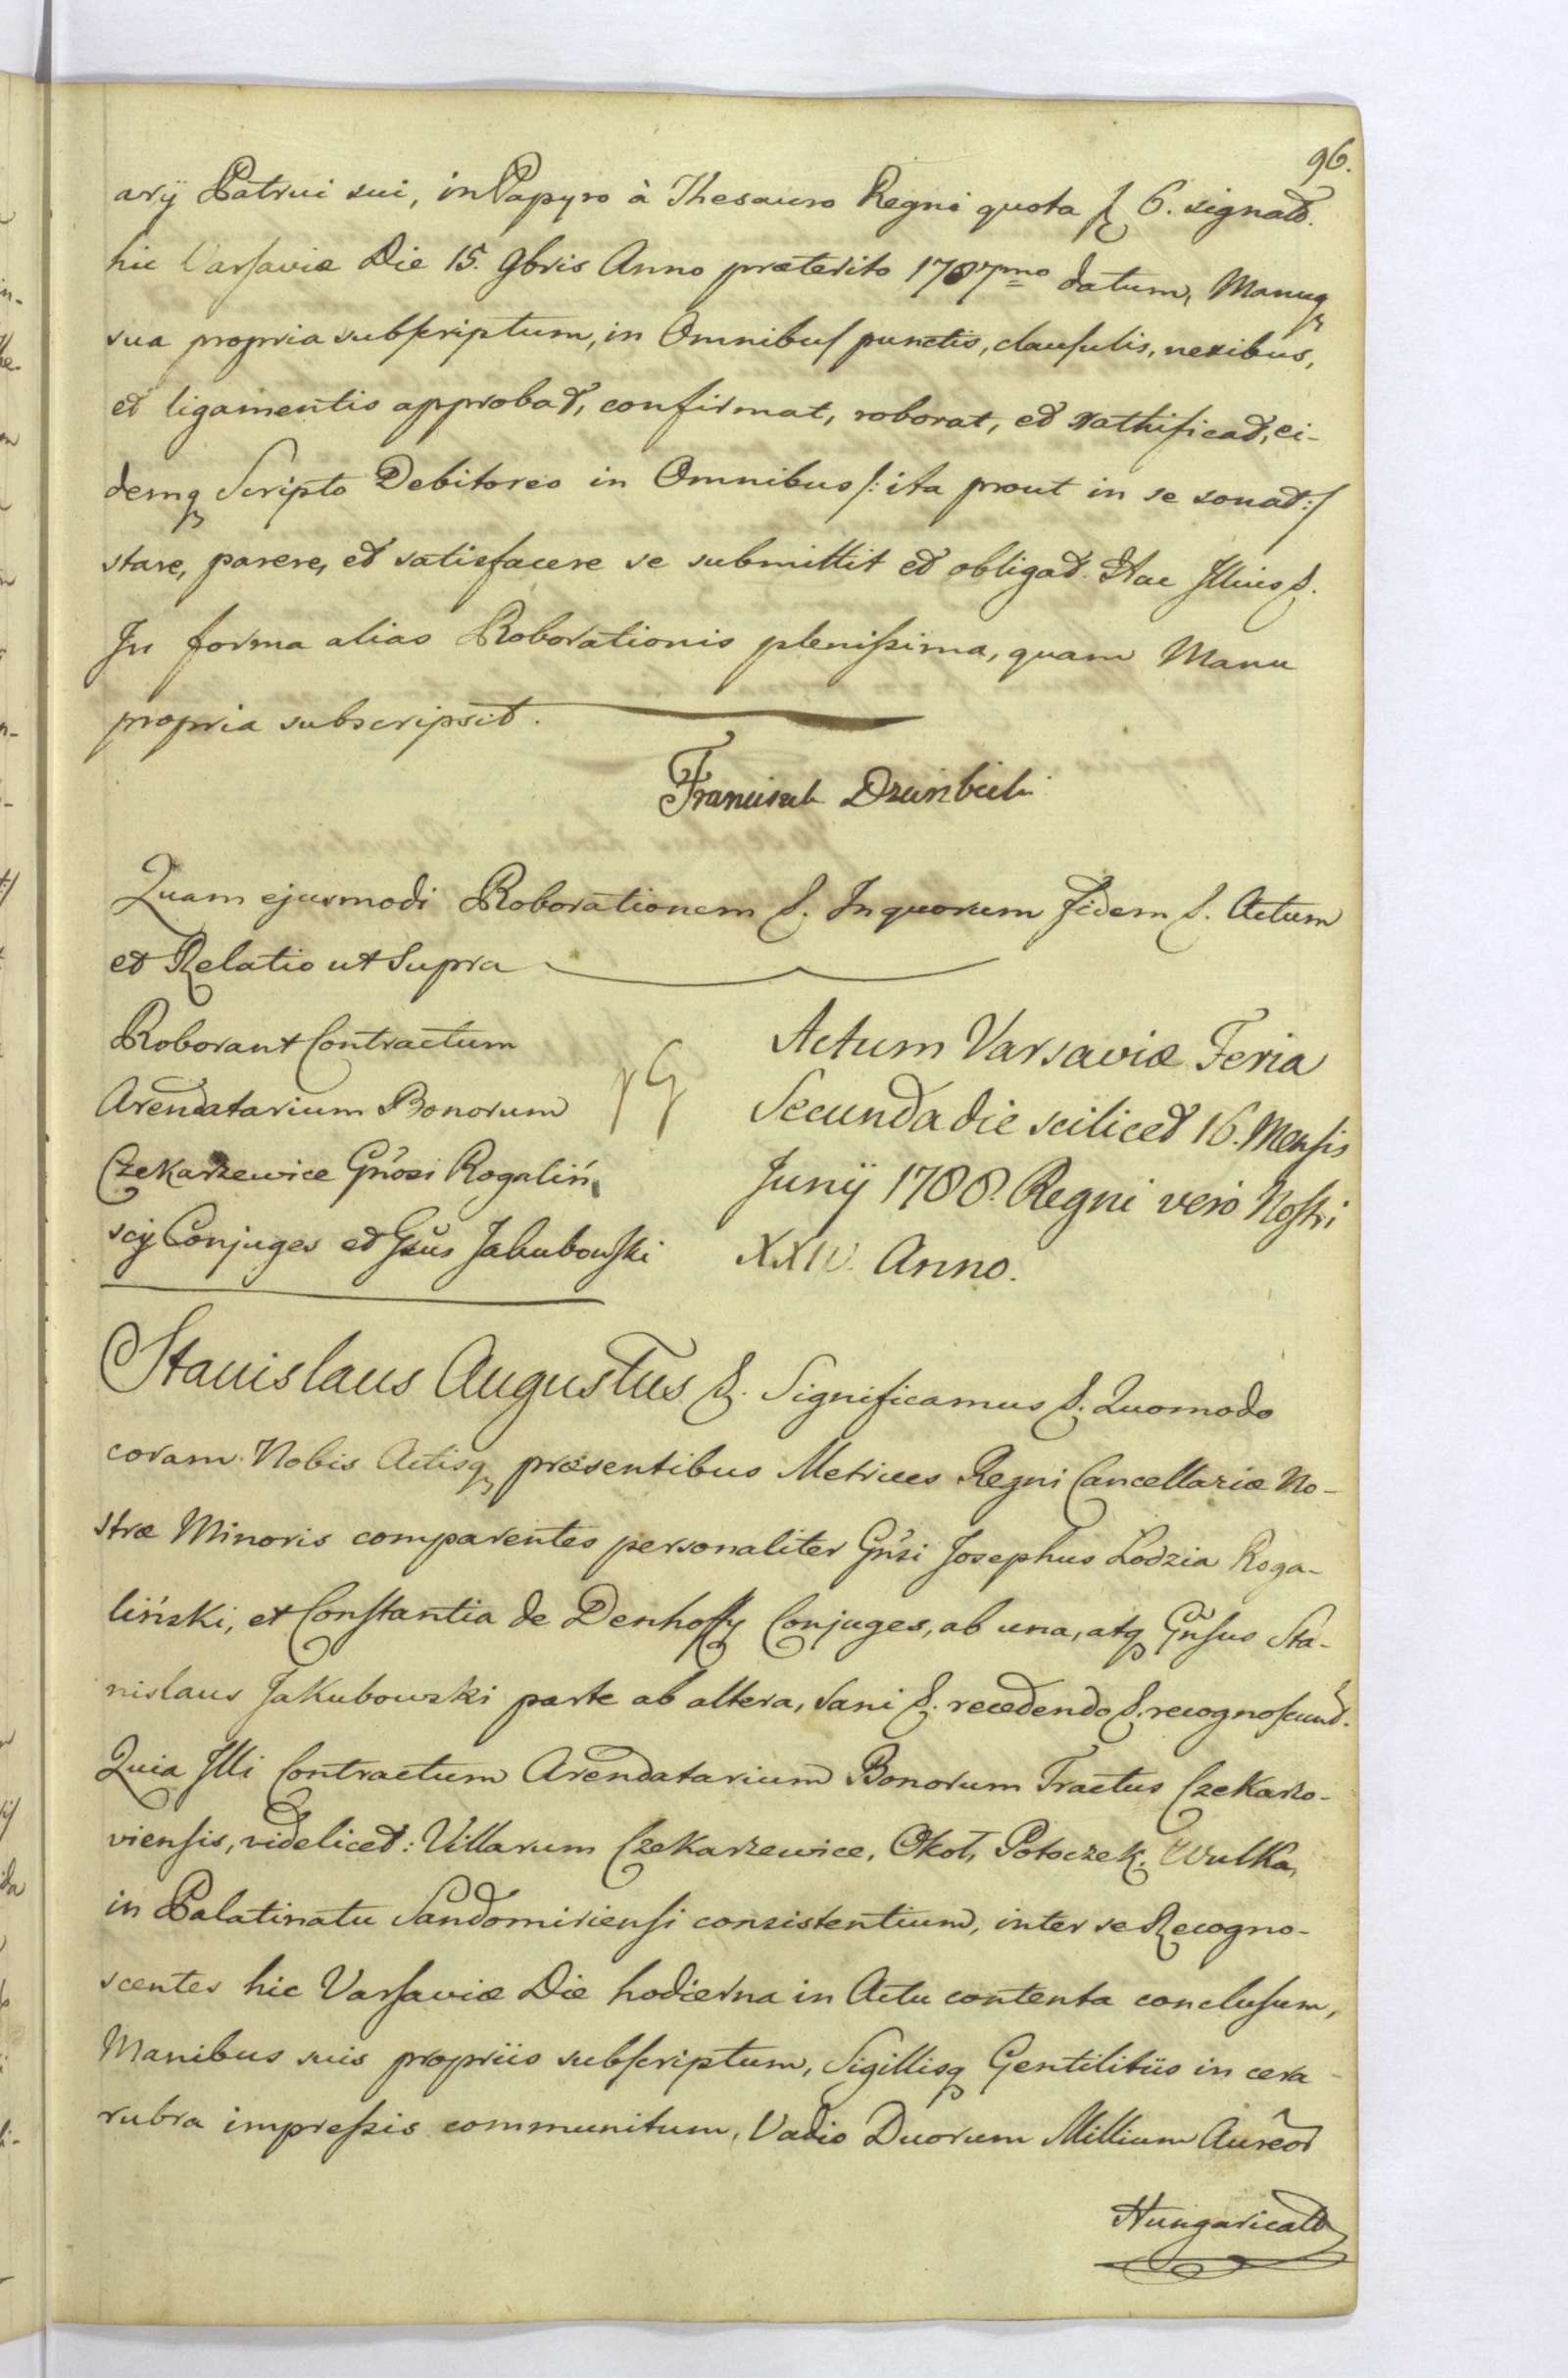 96.
arÿ Patrui sui, in Papyro à Thesauro Regni quota fl 6. signat.
hic Varsaviæ Die 15. 9bris Anno præterito 1787mo datum, Manuq
sua propria subscriptum, in Omnibus punctis, clausulis, nexibus,
et ligamentis approbat, confirmat, roborat, et rathificat, ei-
demq Scripto Debitoreo in Omnibus /: ita prout in se sonat :/
stare, parere, et satisfacere se submittit et obligat. Hac Illius &.
In forma alias Roborationis plenissima, quam Manu
propria subscripsit.
Franciszek Dzierzbicki
Quam ejusmodi Roborationem &. In quorum fidem &. Actum
et Relatio ut Supra
Roborant Contractum
Arendatarium Bonorum
Czekarzewice Gñosi Rogaliń
scÿ Conjuges et Gsus Jakubowski
Actum Varsaviæ Feria
Secunda die scilicet 16. Mensis
Junÿ 1788. Regni vero Nostri
XXIV. Anno.
Stanislaus Augustus &. Significamus &. Quomodo
coram Nobis Actisq præsentibus Metrices Regni Cancellariæ No-
stræ Minoris comparentes personaliter Gñsi Josephus Lodzia Roga-
liński, et Constantia de Denhoffy Conjuges, ab una, atq Gñsus Sta-
nislaus Jakubowski parte ab altera, Sani &. recedendo &. recognoscunt.
Quia Illi Contractum Arendatarium Bonorum Tractus Czekarzo-
viensis, videlicet: Villarum Czekarzewice, Okoł, Potoczek, Wulka,
in Palatinatu Sandomiriensi consistentium, inter se Recogno-
scentes hic Varsaviæ Die hodierna in Actu contenta conclusum,
Manibus suis propriis subscriptum, Sigillisq Gentilitiis in cera
rubra impressis communitum, Vadio Duorum Millium Aureor
Hungaricalo